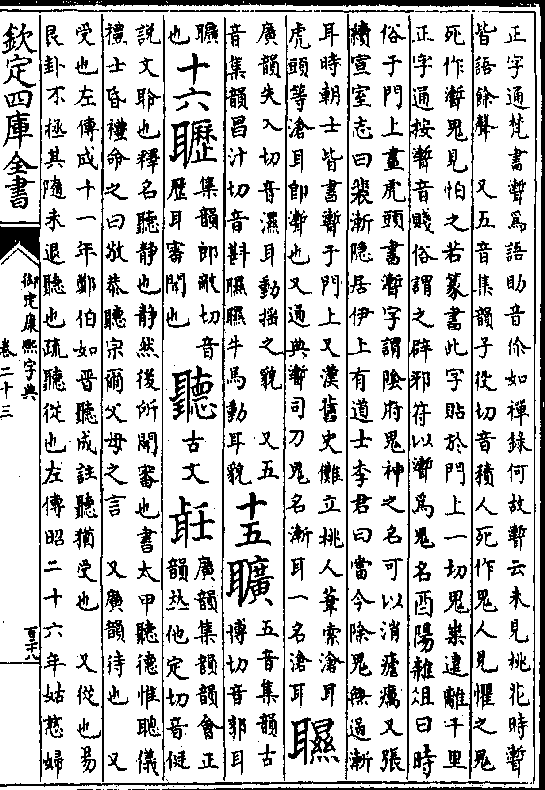 正字通梵書聻為語助音你如禪錄何故聻云未見桃花時聻
皆語餘聲 又五音集韻子役切音積人死作鬼人見懼之鬼
死作聻鬼見怕之若篆書此字貼於門上一切鬼祟遠離千里
正字通按聻音賤俗謂之辟邪符以聻為鬼名酉陽雜俎曰時
俗于門上畫虎頭書聻字謂陰府鬼神之名可以消瘧癘又張
續宣室志曰裴漸隱居伊上有道士李君曰當今除鬼無過漸
耳時朝士皆書聻于門上又漢舊史儺立桃人葦索滄耳
虎頭等滄耳即聻也又通典聻司刀鬼名漸耳一名滄耳
廣韻失入切音濕耳動搖之貌 又五
音集韻昌汁切音斟牛馬動耳貌
十五
五音集韻古
博切音郭耳
也
十六
集韻郎敵切音
歷耳審聞也
聽
古文
廣韻集韻韻會正
韻𠀤他定切音侹
說文聆也釋名聽靜也靜然後所聞審也書太甲聽德惟聰儀
禮士昏禮命之曰敬恭聽宗爾父母之言 又廣韻待也 又
受也左傳成十一年鄭伯如晉聽成註聽猶受也 又從也易
艮卦不拯其隨未退聽也疏聽從也左傳昭二十六年姑慈婦
欽定四庫全書
御定康熙字典
卷二十三